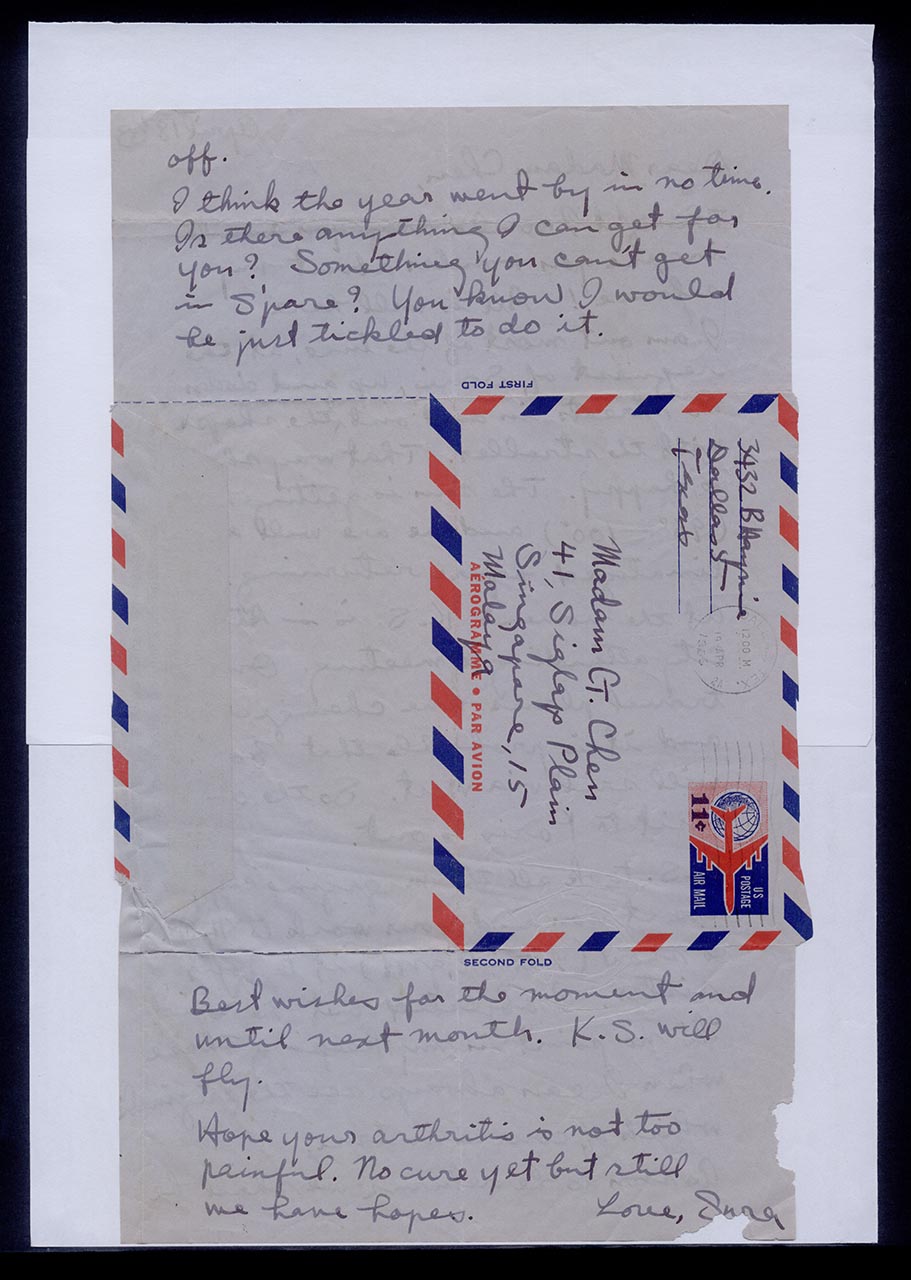 off.
I think the year went by in no time.
Is there anything I can get for
you? Something you can't get
in S'pore? You know I would
be just tickled to do it.
FIRST FOLD
3432 B Haynie
Dallas 5
Texas
12 00 M
19 APR
TEX.
Madam C.T. Chen
41, Siglap Plain
Singapore, 15
Malaya
AÉROGRAMME • PAR AVION
11¢
US
POSTAGE
AIR MAIL
SECOND FOLD
Best wishes for the moment and
until next month. K.S. will
fly.
Hope your arthritis is not too
painful. No cure yet but still
we have hopes. Love,